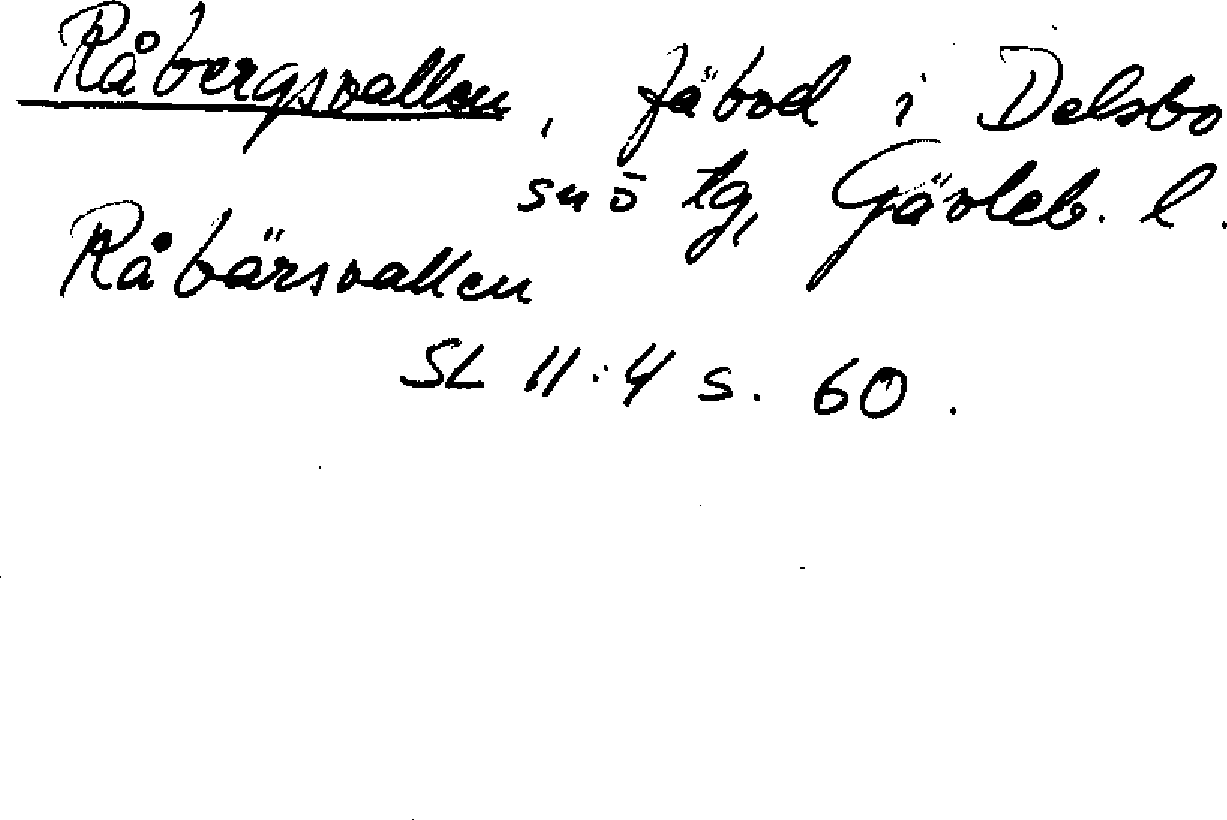 Råbergsvallen, fäbod i Delsbo
sn o tg, Gävleb. l.
Råbärsvallen
SL 11:4 s. 60.